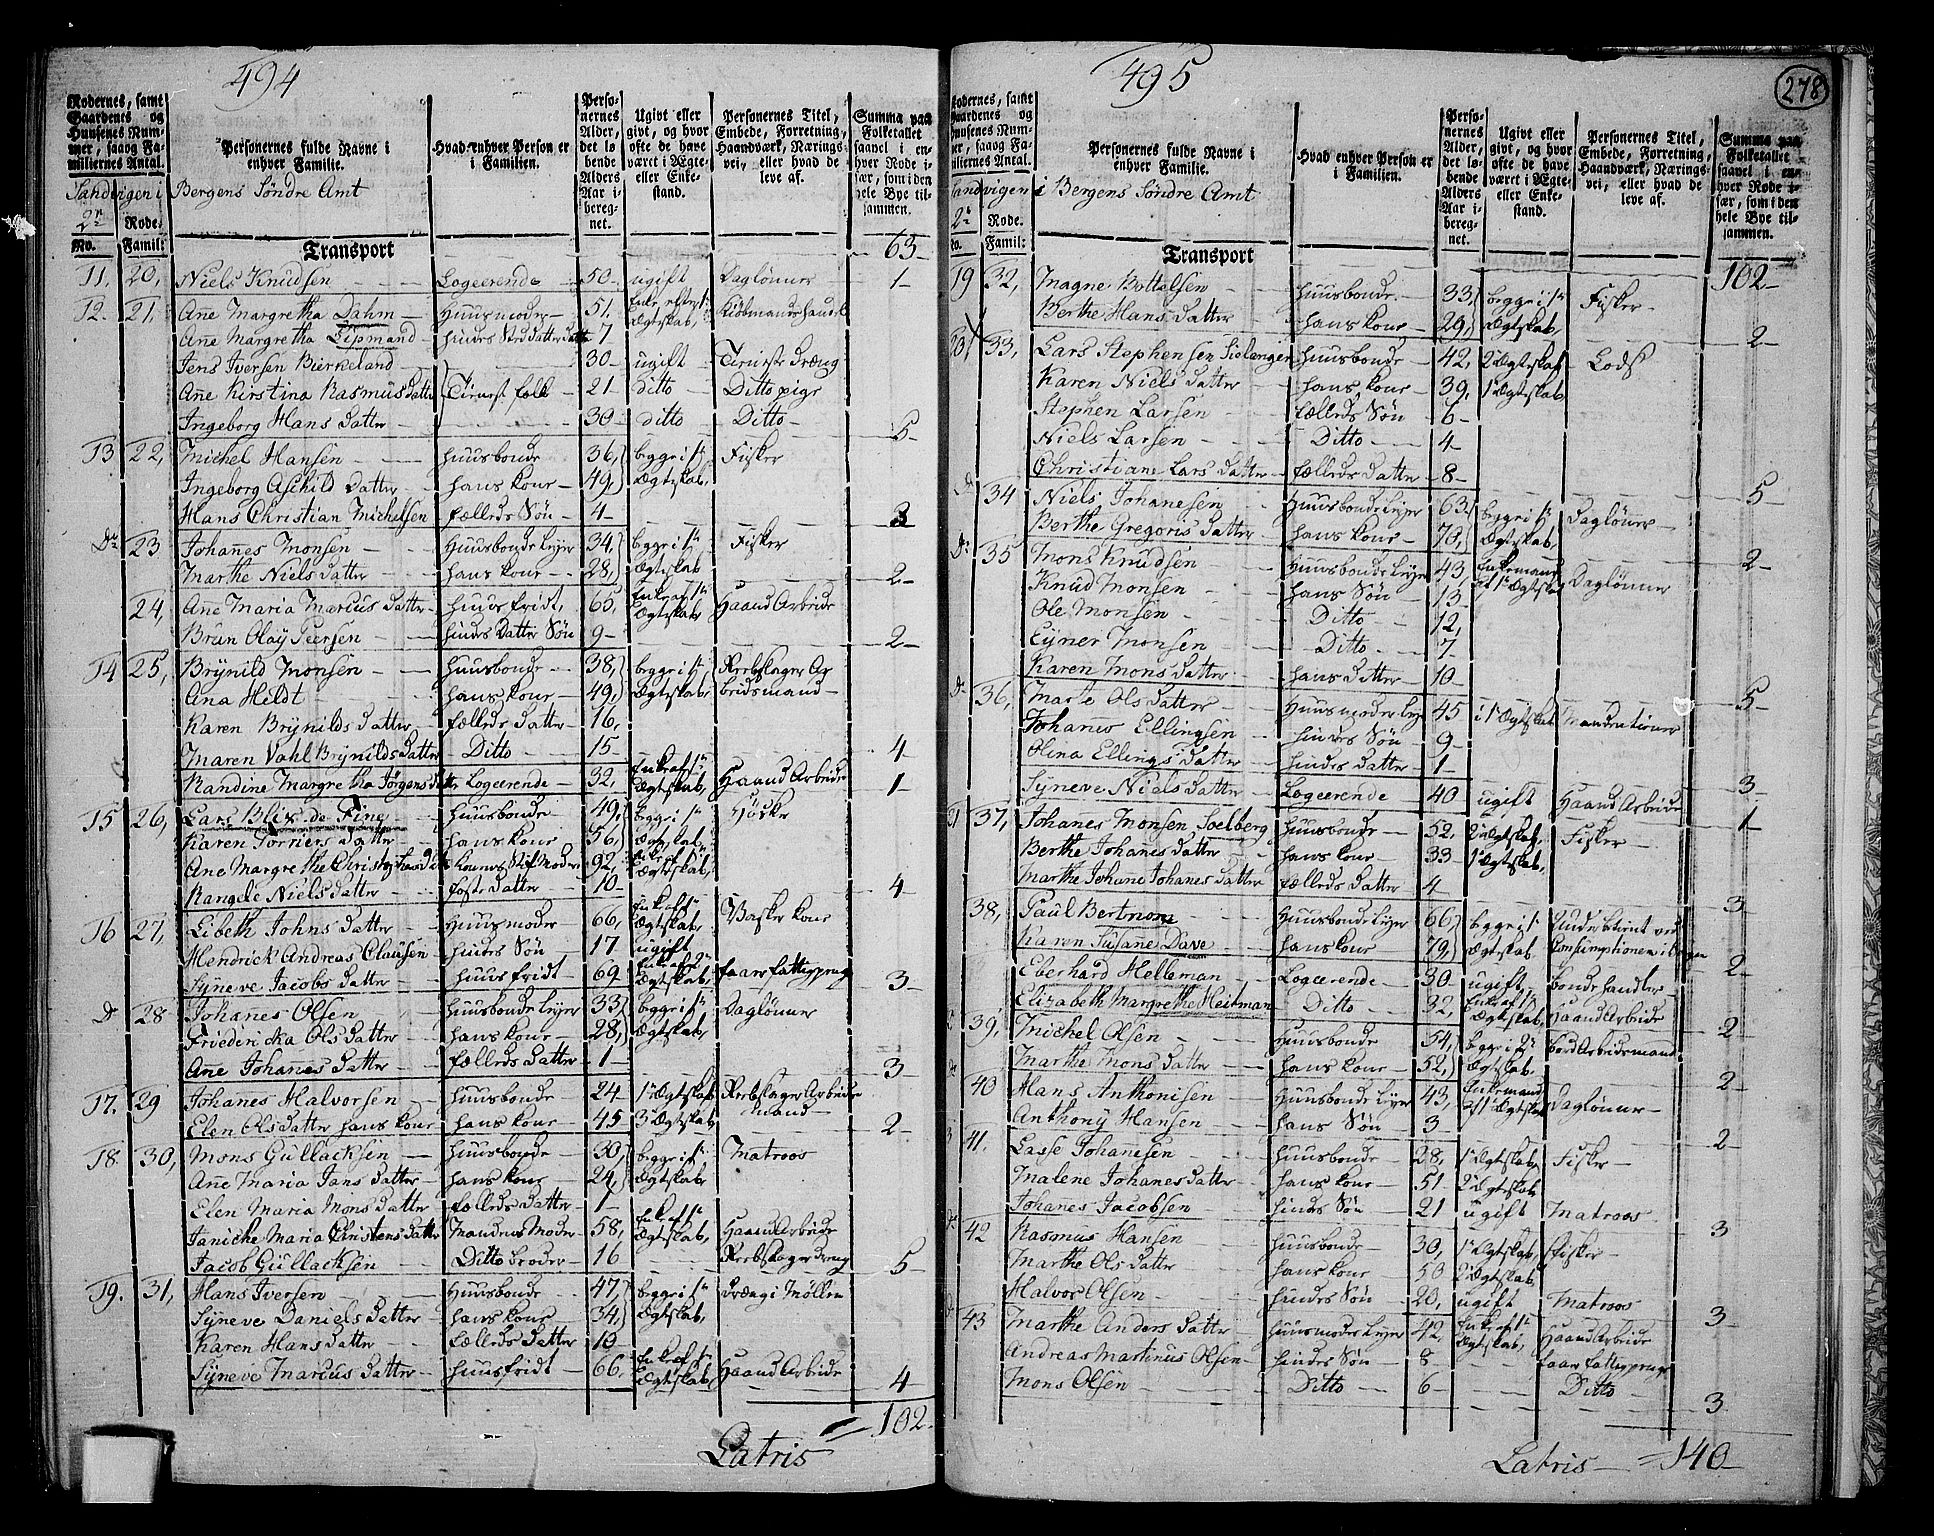 494
Rodernes, samt Gaardenes og Huusenes Nummer, saavog Familiernes Antal.
Personernes fulde Navne i enhver Familie.
Hvad enhver Person er i Familien.
Personernes Alder, det løbende Alders Aar iberegnet.
Ugivt eller givt, og hvor ofte de have været i Ægte- eller Enkestand.
Personernes Titel, Embede, Forretning, Haandværk, Næringsvei, eller hvad de leve af.
Summa paa Folketallet saavel i enhver Rode især, som i den hele Bye tilsammen.
Sandvigen i Bergens Søndre Amt
2n Rode:
No. Famil: Transport 63
11. 20, Niels Knudsen Logeerende 50 ugift Daglønner 1
12. 21, Ane Margretha Dahm Huusmoder 51. Enke efter 1s Ægtskab, Kiøbmandshandel
Ane Margretha Lipmand hindes Sted Datter Datter 7
Jens Iversen Birkeland 30 ugift Tieneste dræng
Ane Kirstina Rasmusdatter Tienest folk 21 Ditto Ditto pige
Ingeborg Hans datter 30 ditto Ditto 5
13 22, Michel Hansen huusbonde 36, begge i 1s Fisker
Ingeborg Aschild datter hans kone 49, Ægtskab,
Hans Christian Michelsen fælleds Søn 4 3
Do 23 Johanes Monsen Huusbonde Leyer 34, begge i 1s Fisker
Marthe Niels datter hans kone 28, Ægtskab 2
24, Ane Maria Marcus datter huus fridt, 65, Enke af 1s Ægtskab Haand Arbeide
Brun Olay Peersen hindes datter Søn 9 2
14 25, Brynild Monsen Huusbonde 38, begge i 1s Reebslager Ar
Ana Hildt hans kone 49, Ægtskab beidsmand
Karen Brynilds datter fælleds datter 16,
Maren Vahl Brynilds datter Ditto 15 4
Randine Margretha Jørgens datter Logeerende 32, Enke af 1s Ægtskab, Haand Arbeide 1
15 26, Lars Blix de Fine huusbonde 49, begge i 1s Høcker
Karen Torriers datter hans kone 56, Ægtskab,
Ane Margrethe datter konens Stifmoder 92, Ægtskab,
Rangele Niels datter foster datter 10 4
16 27, Libeth Johns datter Huusmoder 66, Enke af Ægtskab, Vasker kone
Hendrick Andreas Clausen hindes Søn 17 ugift
Syneve Jacobs datter huus fridt 69 Enke af 2s Ægtskab, faar fattigpenge 3
Do 28 Johanes Olsen huusbonde Leyer 33 begge i 1s Daglønner
Friedericka Ols datter hans kone 28, Ægtskab,
Ane Johanes datter fælleds datter 1 3
17. 29 Johanes Halvorsen huusbonde 24 1s Ægtskab Reebslager Arbeide
Elen Ols datter hans kone hans kone 45 3 Ægtskab mand 2
18 30, Mons Gullacksen huusbonde 30, begge i 1s Matroos
Ane Maria Jans datter hans kone 24, Ægtskab
Elen Maria Mons datter fælleds datter 1
Janiche Maria Christens datter Mandens Moder 58, Enke af 1s Ægtskab, Haand Arbeide
Jacob Gullacksen Ditto broder 16 Reebslager dreng 5
19. 31, Hans Iversen Huusbonde 47, begge i 1s dræng i Møllen
Syneve Daniels datter hans kone 34, Ægtskab,
Karen Hans datter fælleds datter 10
Syneve Marcus datter huus fridt 66, Enke af 1s Ægtskab, Haand Arbeide 4
Latris 102
495
278
Rodernes, samt Gaardenes og Huusenes Nummer, saavog Familiernes Antal.
Personernes fulde Navne i enhver Familie.
Hvad enhver Person er i Familien.
Personernes Alder, det løbende Alders Aar iberegnet.
Ugivt eller givt, og hvor ofte de have været i Ægte- eller Enkestand.
Personernes Titel, Embede, Forretning, Haandværk, Næringsvei, eller hvad de leve af.
Summa paa Folketallet saavel i enhver Rode især, som i den hele Bye tilsammen.
Sandvigen i Bergens Søndre Amt
2n Rode.
No. Famil: Transport 102
19 32, Magne Bottelsen huusbonde 33, begge i 1s Fisker
Berthe Hans datter hans kone 29, Ægtskab, 2
20 33, Lars Stephensen Sielanger huusbonde 42, 2 Ægtskab Lods
Karen Niels datter hans kone 39, 1s Ægtskab
Stephen Larsen fælleds Søn 6
Niels Larsen Ditto 4
Christiane Lars datter fælleds datter 8 5
Do 34 Niels Johanesen Huusbonde Leyer 63 begge i 1s Daglønner
Berthe Gregoris datter hans kone 70, Ægtskab, 2
Do 35 Mons Knudsen Huusbonde Leyer 43, Enkemand af 1s Ægtskab Daglønner
Knud Monsen hans Søn 13
Ole Monsen Ditto 12,
Eyner Monsen Ditto 7
Karen Mons datter hans datter 10 5
Do 36, Marte Ols datter Huusmoder Leyer 45 i 1s Ægtskab
Johanes Ellingsen hindes Søn 9
Olina Ellings datter hindes datter 1 3
Syneve Niels datter Logeerende 40 ugift Haand Arbeide 1
21 37, Johanes Monsen Soelberg huusbonde 52, 2 Ægtskab, Fisker
Berthe Johanes datter hans kone 33 1s Ægtskab,
Marthe Johane Johanes datter fælleds datter 4 3
38, Paul Bertnom Huusbonde Leyer 66, begge i 1s Under betient ved
Karen Susane Dave hans kone 79, Ægtskab Consumptionen i bergen 2
Eberhard Helleman Logeerende 30 ugift bonde handler
Elizabeth Margrethe Heitman Ditto 32, Enke af 1s Ægtskab, Haand Arbeide 2
39, Michel Olsen Huusbonde 54, begge i 2s bord Arbeidsmand
Marthe Mons datter hans kone 52, Ægtskab, 2
Do 40 Hans Anthonisen Huusbonde Leyer 43, Enkemand af 1s Ægtskab Daglønner
Anthony Hansen hans Søn 3 2
41. Lasse Johanesen Huusbonde 28, 1s Ægtskab Fisker
Malene Johanes datter hans kone 51 2 Ægtskab
Johanes Jacobsen hindes Søn 21 ugift Matroos 3
Do 42 Rasmus Hansen Huusbonde 30, 1s Ægtskab, fisker
Marthe Ols datter hans kone 50 2 Ægtskab,
Halvor Olsen hindes Søn 20, ugift Matroos 3
Do 43 Marthe Anders datter huusmoder Leyer 42, Enke af 1s Ægtskab, Haand Arbeide
Andreas Martinus Olsen hindes Søn 8 faar fattigpenge
Mons Olsen Ditto 6 Ditto 3
Latris 140